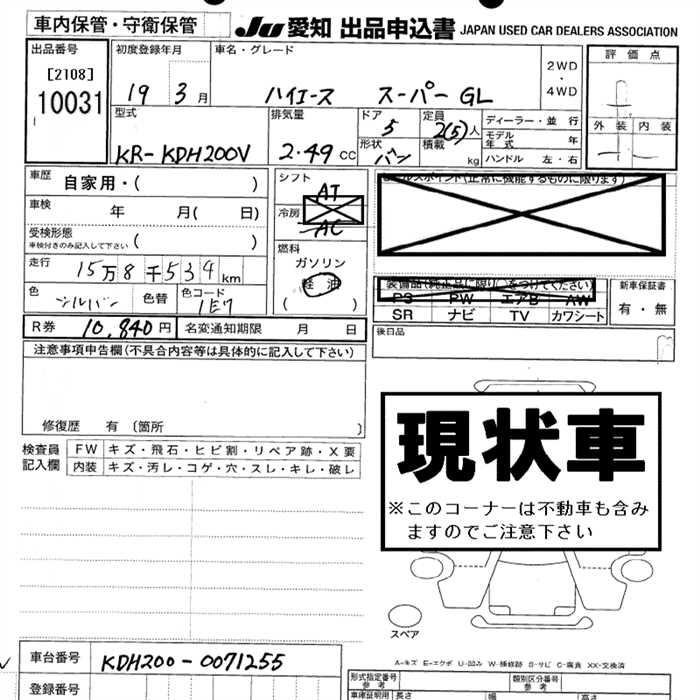 車内保管・守衛保管
JU 愛知 出品申込書 JAPAN USED CAR DEALERS ASSOCIATION
出品番号
[2108]
10031
初度登録年月
19 3月
車名・グレード
ハイエース スーパーGL
2WD
・
4WD
評価点
外装 内装
型式
KR-KDH200V
排気量
2.49 CC
ドア
5
形状
バン
定員
2(5)人
積載
kg
ディーラー・並行
モデル
年式 年
ハンドル 左・右
車歴 自家用・( )
車検 年 月( 日)
受検形態
車検付きのみ記入して下さい ( )
走行 15万8千534km
色 シルバー 色替 色コード 1E7
シフト
AT
冷房
AC
燃料
ガソリン
軽油
( )
(正常に機能するものに限ります)
装備品(純正品に限り○をつけてください)
PS PW エアB AW
SR ナビ TV カワシート
新車保証書
有・無
後日品
R券 10,840円 名変通知期限 月 日
注意事項申告欄(不具合内容等は具体的に記入して下さい)
修復歴 有 〔箇所 〕
検査員
記入欄
FW キズ・飛石・ヒビ割・リペア跡・X要
内装 キズ・汚レ・コゲ・穴・スレ・キレ・破レ
現状車
※このコーナーは不動車も含み
ますのでご注意下さい
スペア
A-キズ E-エクボ U-凹み W-補修跡 S-サビ C-腐食 XX-交換済
車台番号 KDH200-0071255
登録番号
形式指定番号
参考
類別区分番号
参考
車庫証明用 長さ 幅 高さ